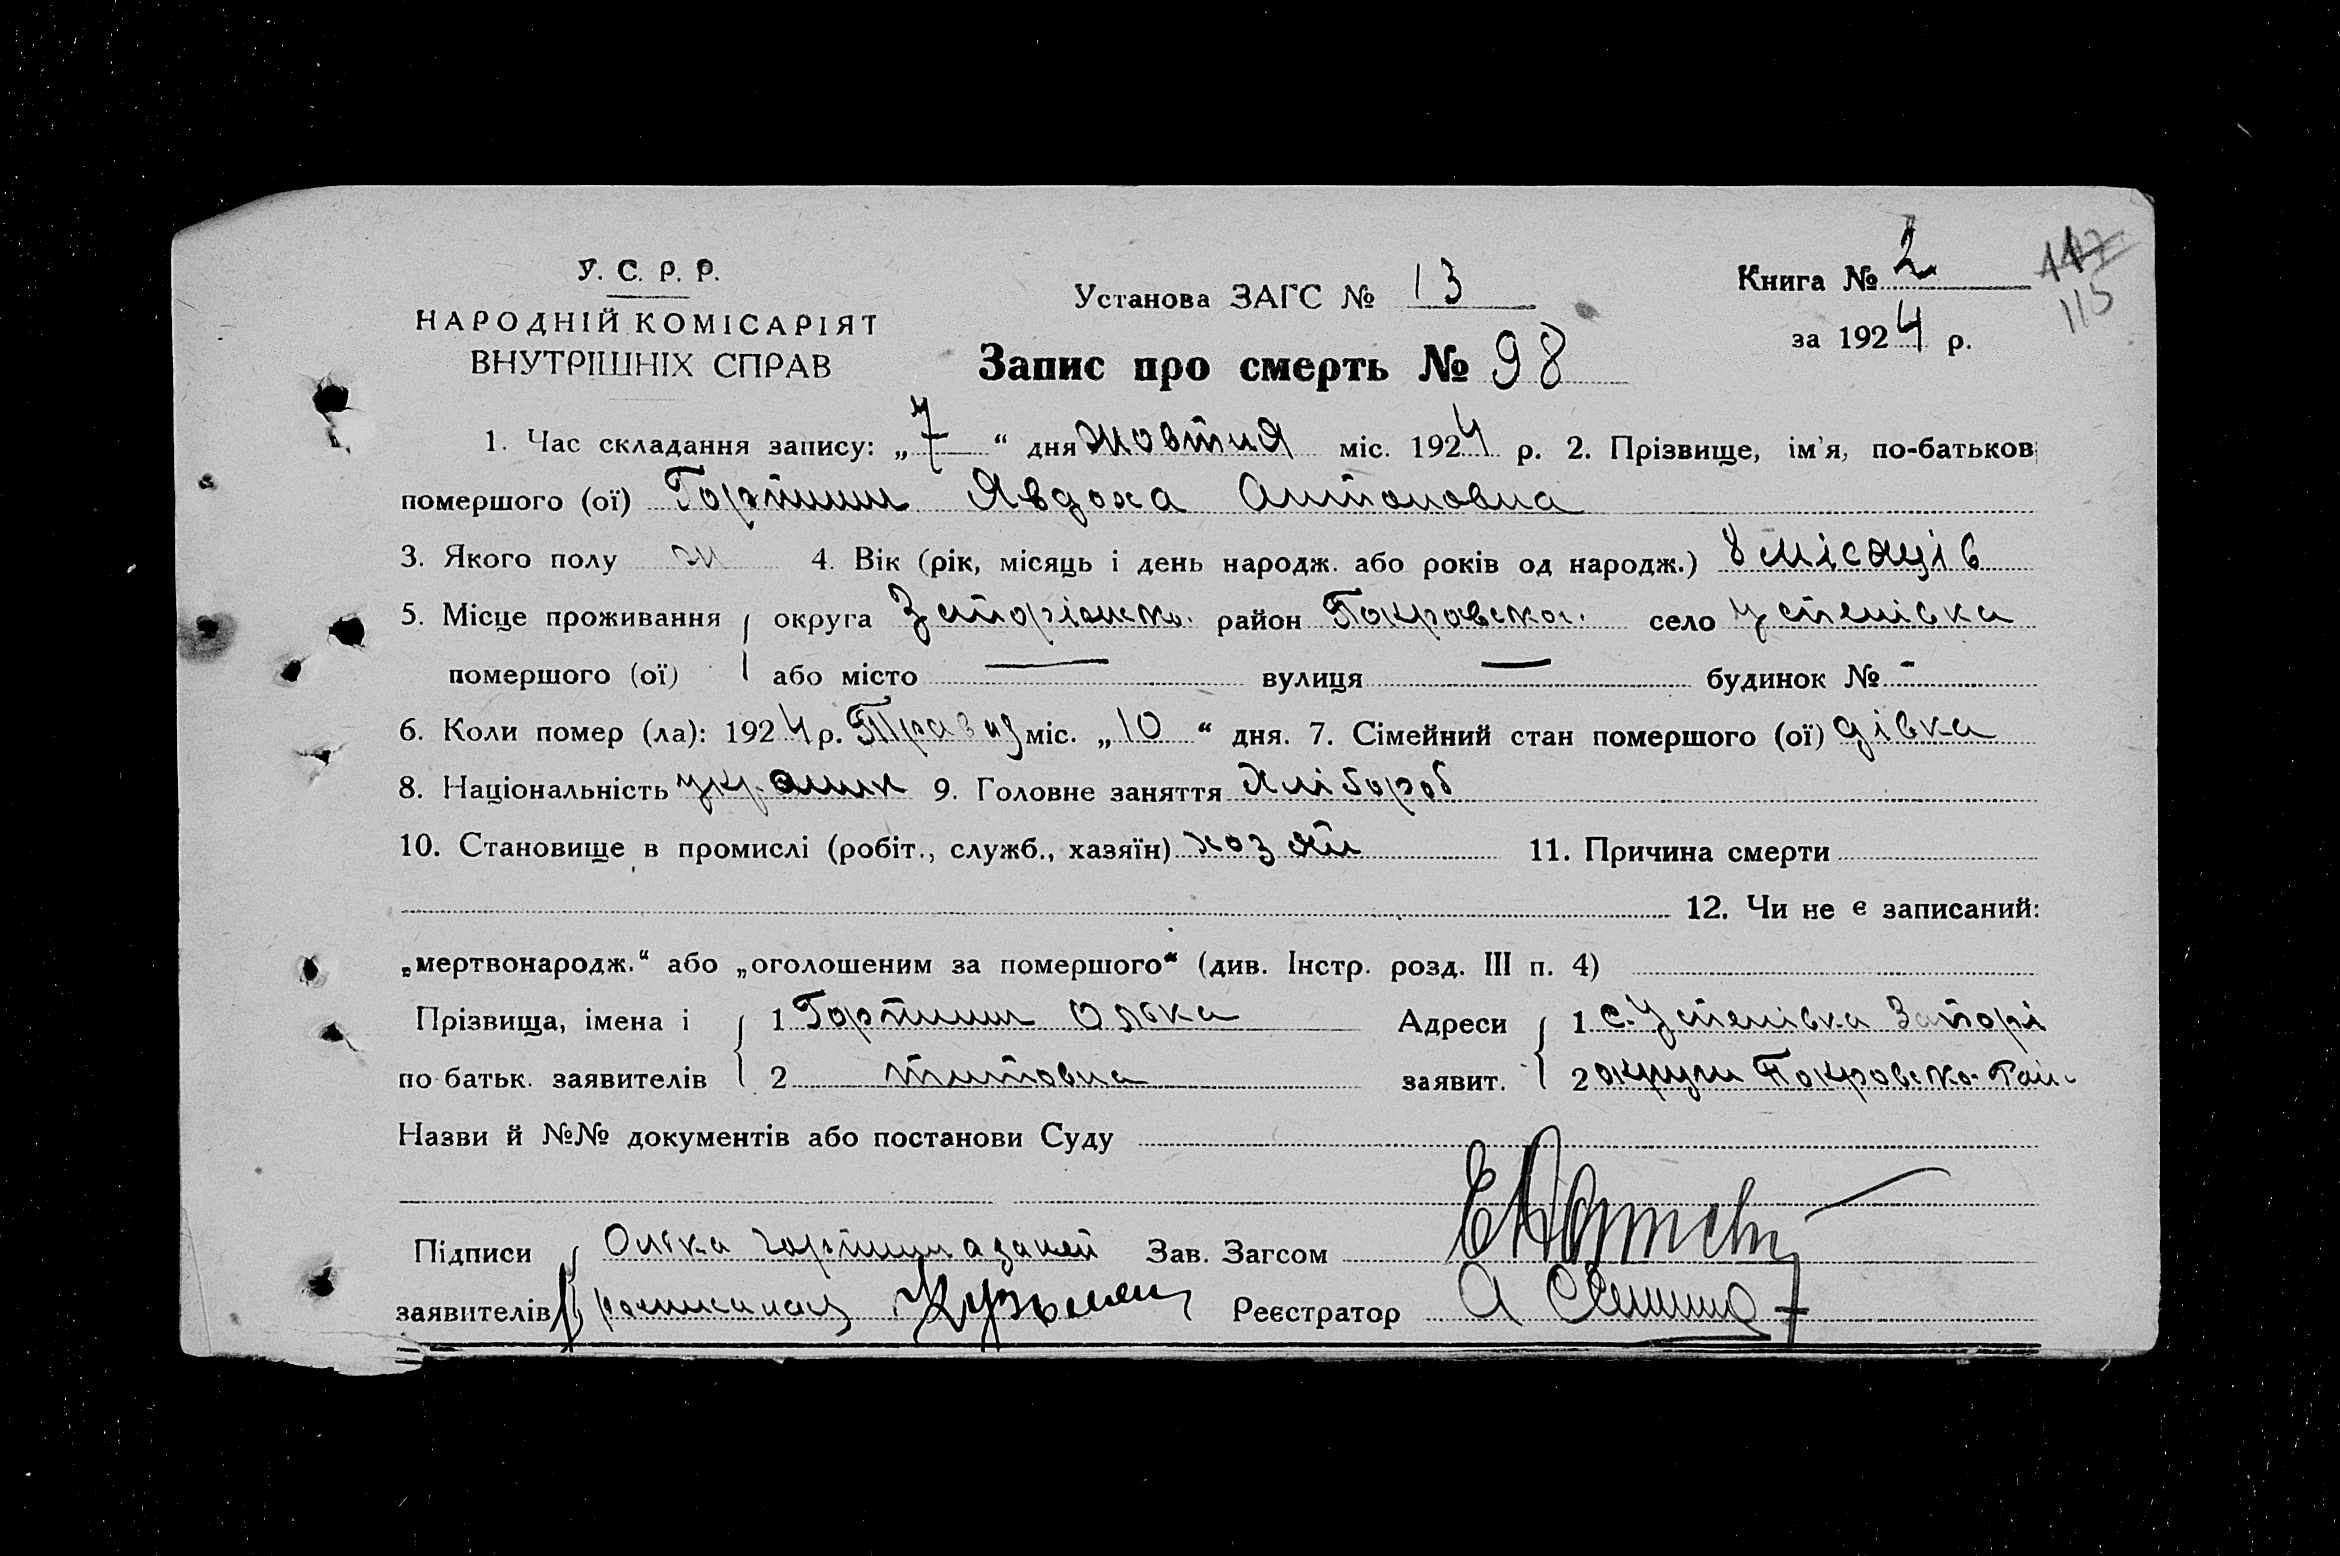 У. С. Р. Р.
НАРОДНІЙ КОМІСАРІЯТ
ВНУТРІШНІХ СПРАВ
Установа ЗАГС № 13
Книга № 2
117
115
за 1924 р.
Запис про смерть № 98
1. Час складання запису: „7“ дня жовтня міс. 1924 р. 2. Прізвище, ім'я, по-батьков
помершого (ої) Явдоха Антоновна
3. Якого полу ж 4. Вік (рік, місяць і день народж. або років од народж.) 8 місяців
5. Місце проживання округа район Покровсько. село Успенівка
помершого (ої) або місто — вулиця — будинок № -
6. Коли помер (ла): 1924 р. міс. „10“ дня. 7. Сімейний стан помершого (ої) дівка
8. Національність 9. Головне заняття Хлібороб
10. Становище в промислі (робіт., служб., хазяїн) хозяй 11. Причина смерти
12. Чи не є записаний:
„мертвонародж.“ або „оголошеним за помершого“ (див. Інстр. розд. III п. 4)
Прізвища, імена і 1 Олька Адреси 1 с. Успенівка Запорі
по-батьк. заявителів 2 Титовна заявит. 2 округи Покровсько-
Назви й №№ документів або постанови Суду
Підписи Олька Зав. Загсом
заявителів Реєстратор А